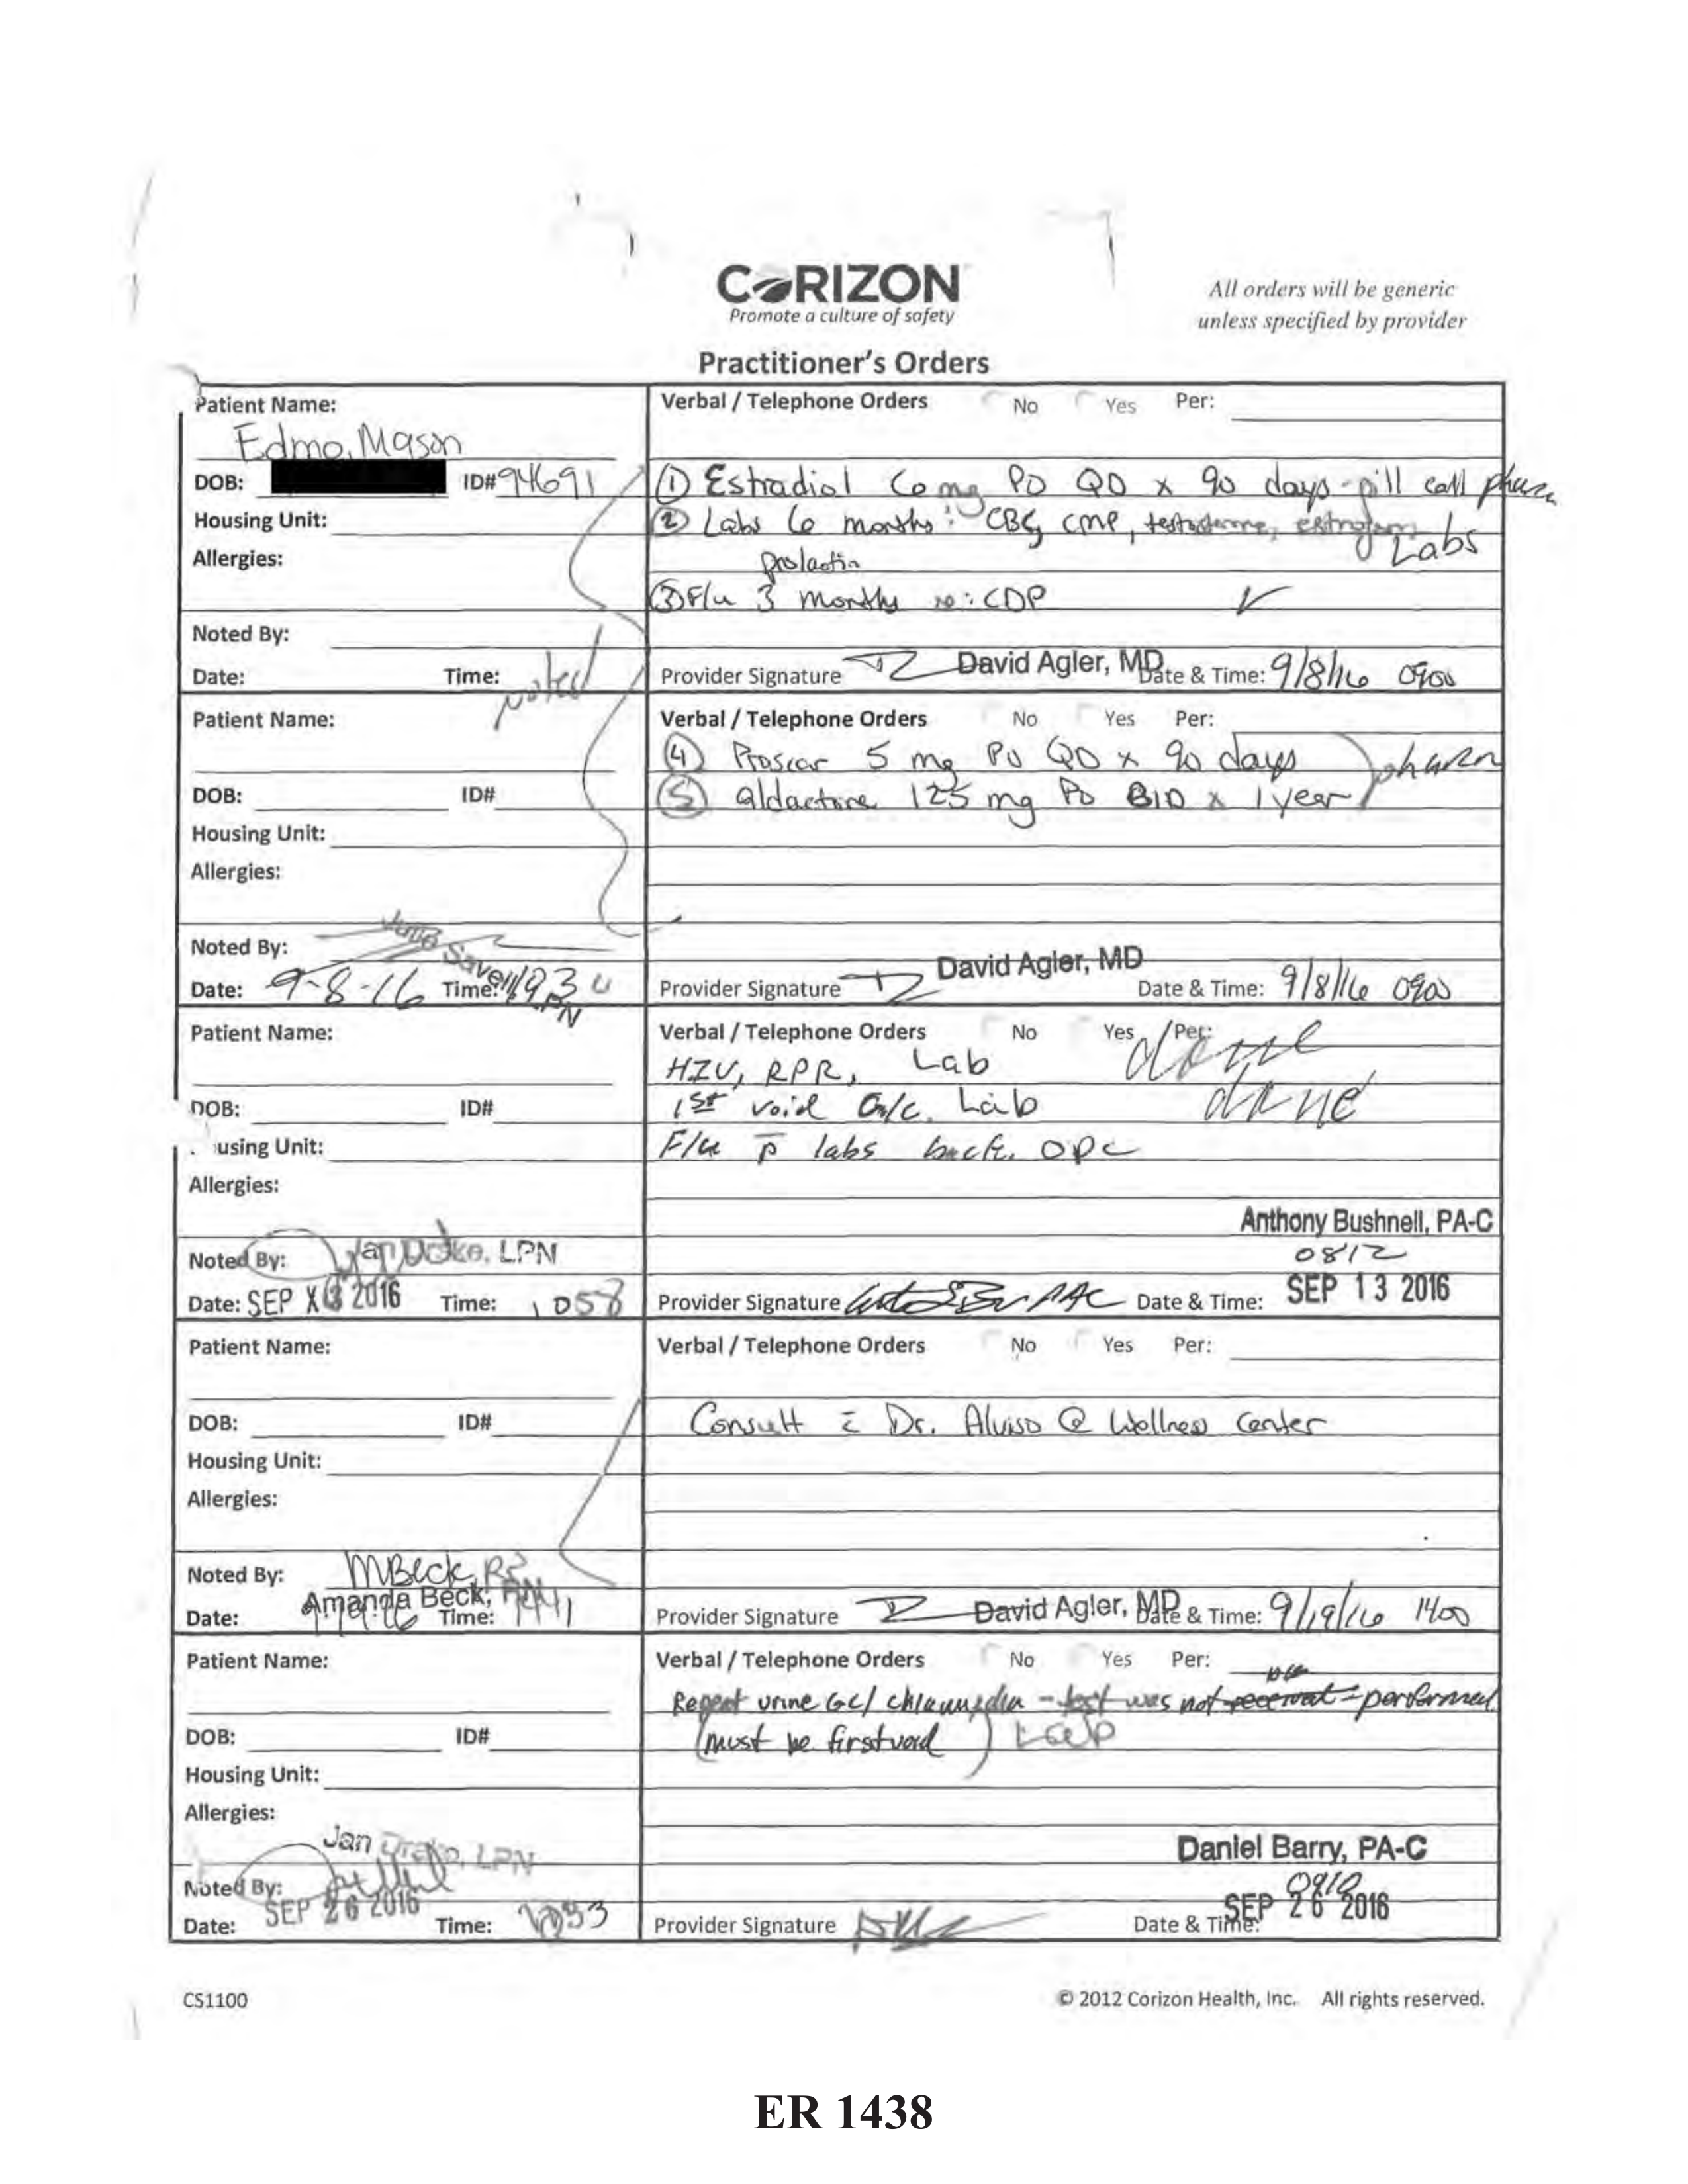 CORIZON
Promote a culture of safety
All orders will be generic
unless specified by provider
Practitioner's Orders
Patient Name:
Edmo, Mason
DOB: ID# 94691
Housing Unit:
Allergies:
Noted By:
Date: Time:
noted
Verbal / Telephone Orders No Yes Per:
① Estradiol 6 mg PO QD x 90 days - pill call pharm
② Labs 6 months: CBC, CMP, testosterone, estrogen, Labs
prolactin
③ F/u 3 months re: CDP ✓
Provider Signature David Agler, MD Date & Time: 9/8/16 0900
Patient Name:
DOB: ID#
Housing Unit:
Allergies:
Noted By:
Date: 9-8-16 Time: 1930
LPN
Verbal / Telephone Orders No Yes Per:
④ Proscar 5 mg PO QD x 90 days pharm
⑤ aldactone 125 mg PO BID x 1 year
Provider Signature David Agler, MD Date & Time: 9/8/16 0900
Patient Name:
DOB: ID#
using Unit:
Allergies:
Noted By: Jan Drake, LPN
Date: SEP 13 2016 Time: 1058
Verbal / Telephone Orders No Yes Per:
HIV, RPR, Lab done
1st void G/c. Lab done
F/u p̄ labs back. OPC
Anthony Bushnell, PA-C
0812
Provider Signature Date & Time: SEP 13 2016
Patient Name:
DOB: ID#
Housing Unit:
Allergies:
Noted By: MBeck, RN
Amanda Beck, RN
Date: Time: 1441
Verbal / Telephone Orders No Yes Per:
Consult c̄ Dr. Alviso @ Wellness Center
Provider Signature David Agler, MD Date & Time: 9/19/16 1400
Patient Name:
DOB: ID#
Housing Unit:
Allergies:
Jan Drake, LPN
Noted By:
Date: SEP 26 2016 Time:
Verbal / Telephone Orders No Yes Per:
Repeat urine GC/chlamydia - test was not performed
(must be first void) Lab
Daniel Barry, PA-C
0910
Provider Signature Date & Time: SEP 26 2016
CS1100
© 2012 Corizon Health, Inc. All rights reserved.
ER 1438